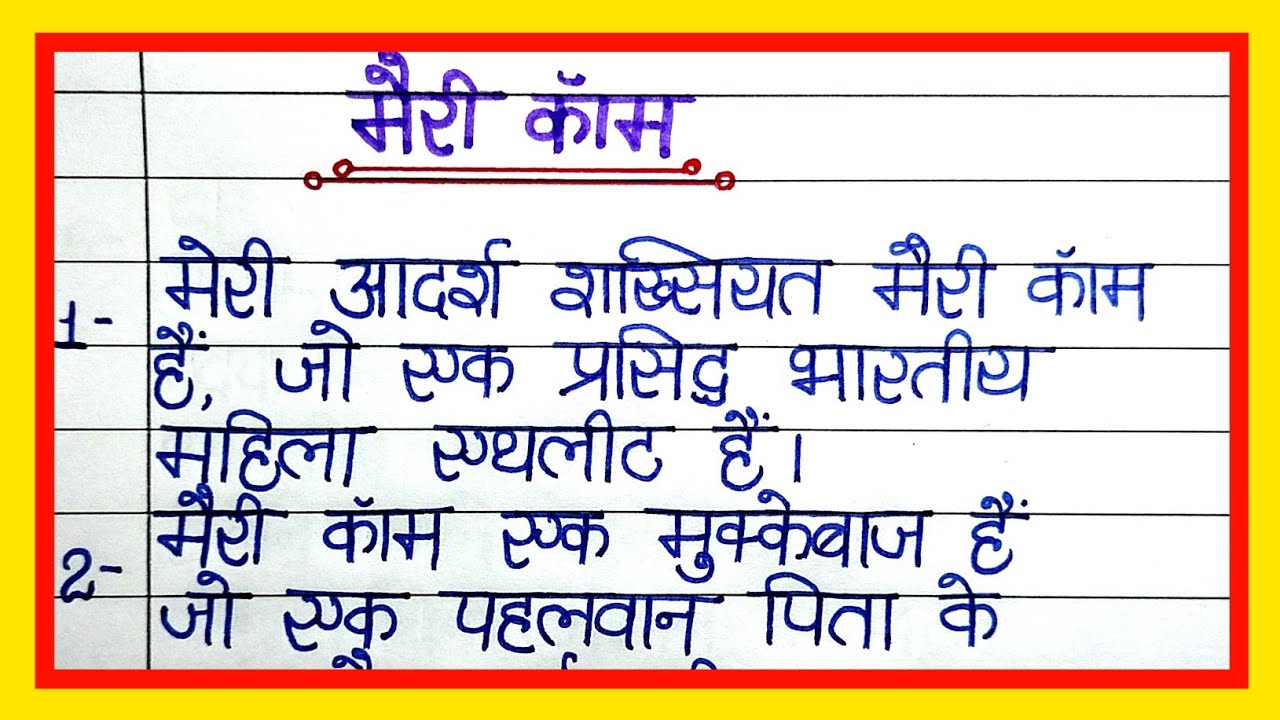 मैरी कॉम
1- मेरी आदर्श शख्सियत मैरी कॉम
हैं, जो एक प्रसिद्ध भारतीय
महिला एथलीट हैं।
2- मैरी कॉम एक मुक्केबाज हैं
जो एक पहलवान पिता के